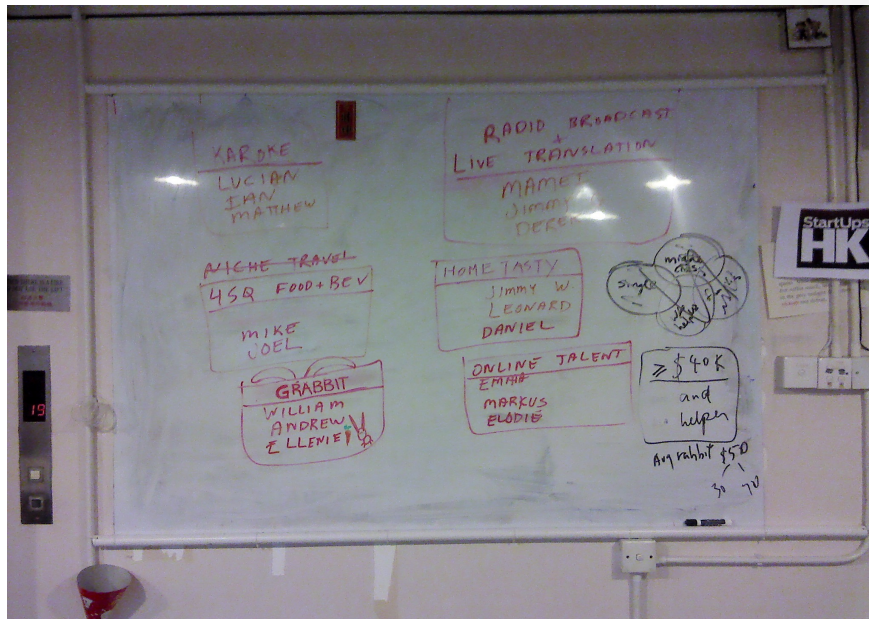 KAROKE
LUCIAN
IAN
MATTHEW
RADIO BROADCAST
+
LIVE TRANSLATION
MAMET
JIMMY
DEREK
NICHE TRAVEL
4SQ FOOD + BEV
MIKE
JOEL
HOME TASTY
JIMMY W
LEONARD
DANIEL
GRABBIT
WILLIAM
ANDREW
ELLENIE
ONLINE TALENT
EMMA
MARKUS
ELODIE
single
middle
class
helper
≥ $40K
and
helper
Avg rabbit $50
30 70
StartUps
HK
19